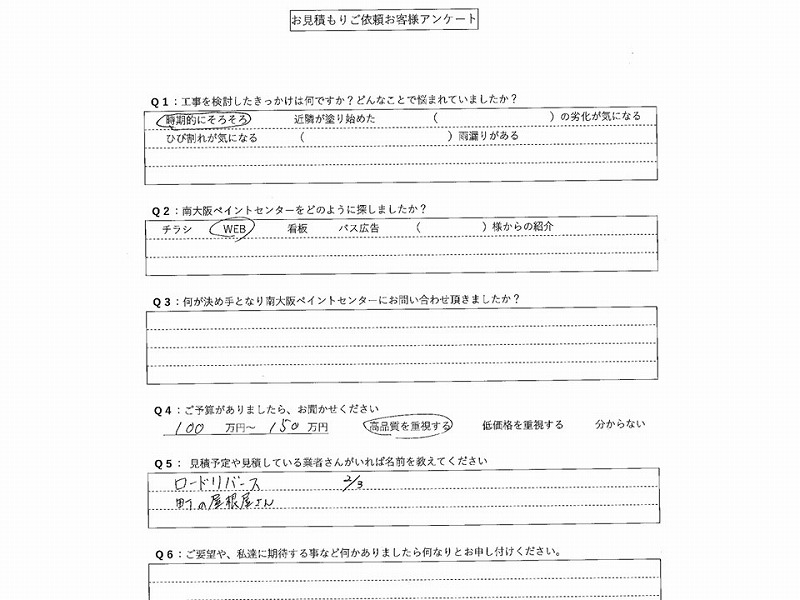 お見積もりご依頼お客様アンケート
Q1:工事を検討したきっかけは何ですか?どんなことで悩まれていましたか?
時期的にそろそろ 近隣が塗り始めた ( )の劣化が気になる
ひび割れが気になる ( )雨漏りがある
Q2:南大阪ペイントセンターをどのように探しましたか?
チラシ WEB 看板 バス広告 ( )様からの紹介
Q3:何が決め手となり南大阪ペイントセンターにお問い合わせ頂きましたか?
Q4:ご予算がありましたら、お聞かせください
100 万円~ 150 万円 高品質を重視する 低価格を重視する 分からない
Q5: 見積予定や見積している業者さんがいれば名前を教えてください
ロードリバース 2/3
町の屋根屋さん
Q6:ご要望や、私達に期待する事など何かありましたら何なりとお申し付けください。